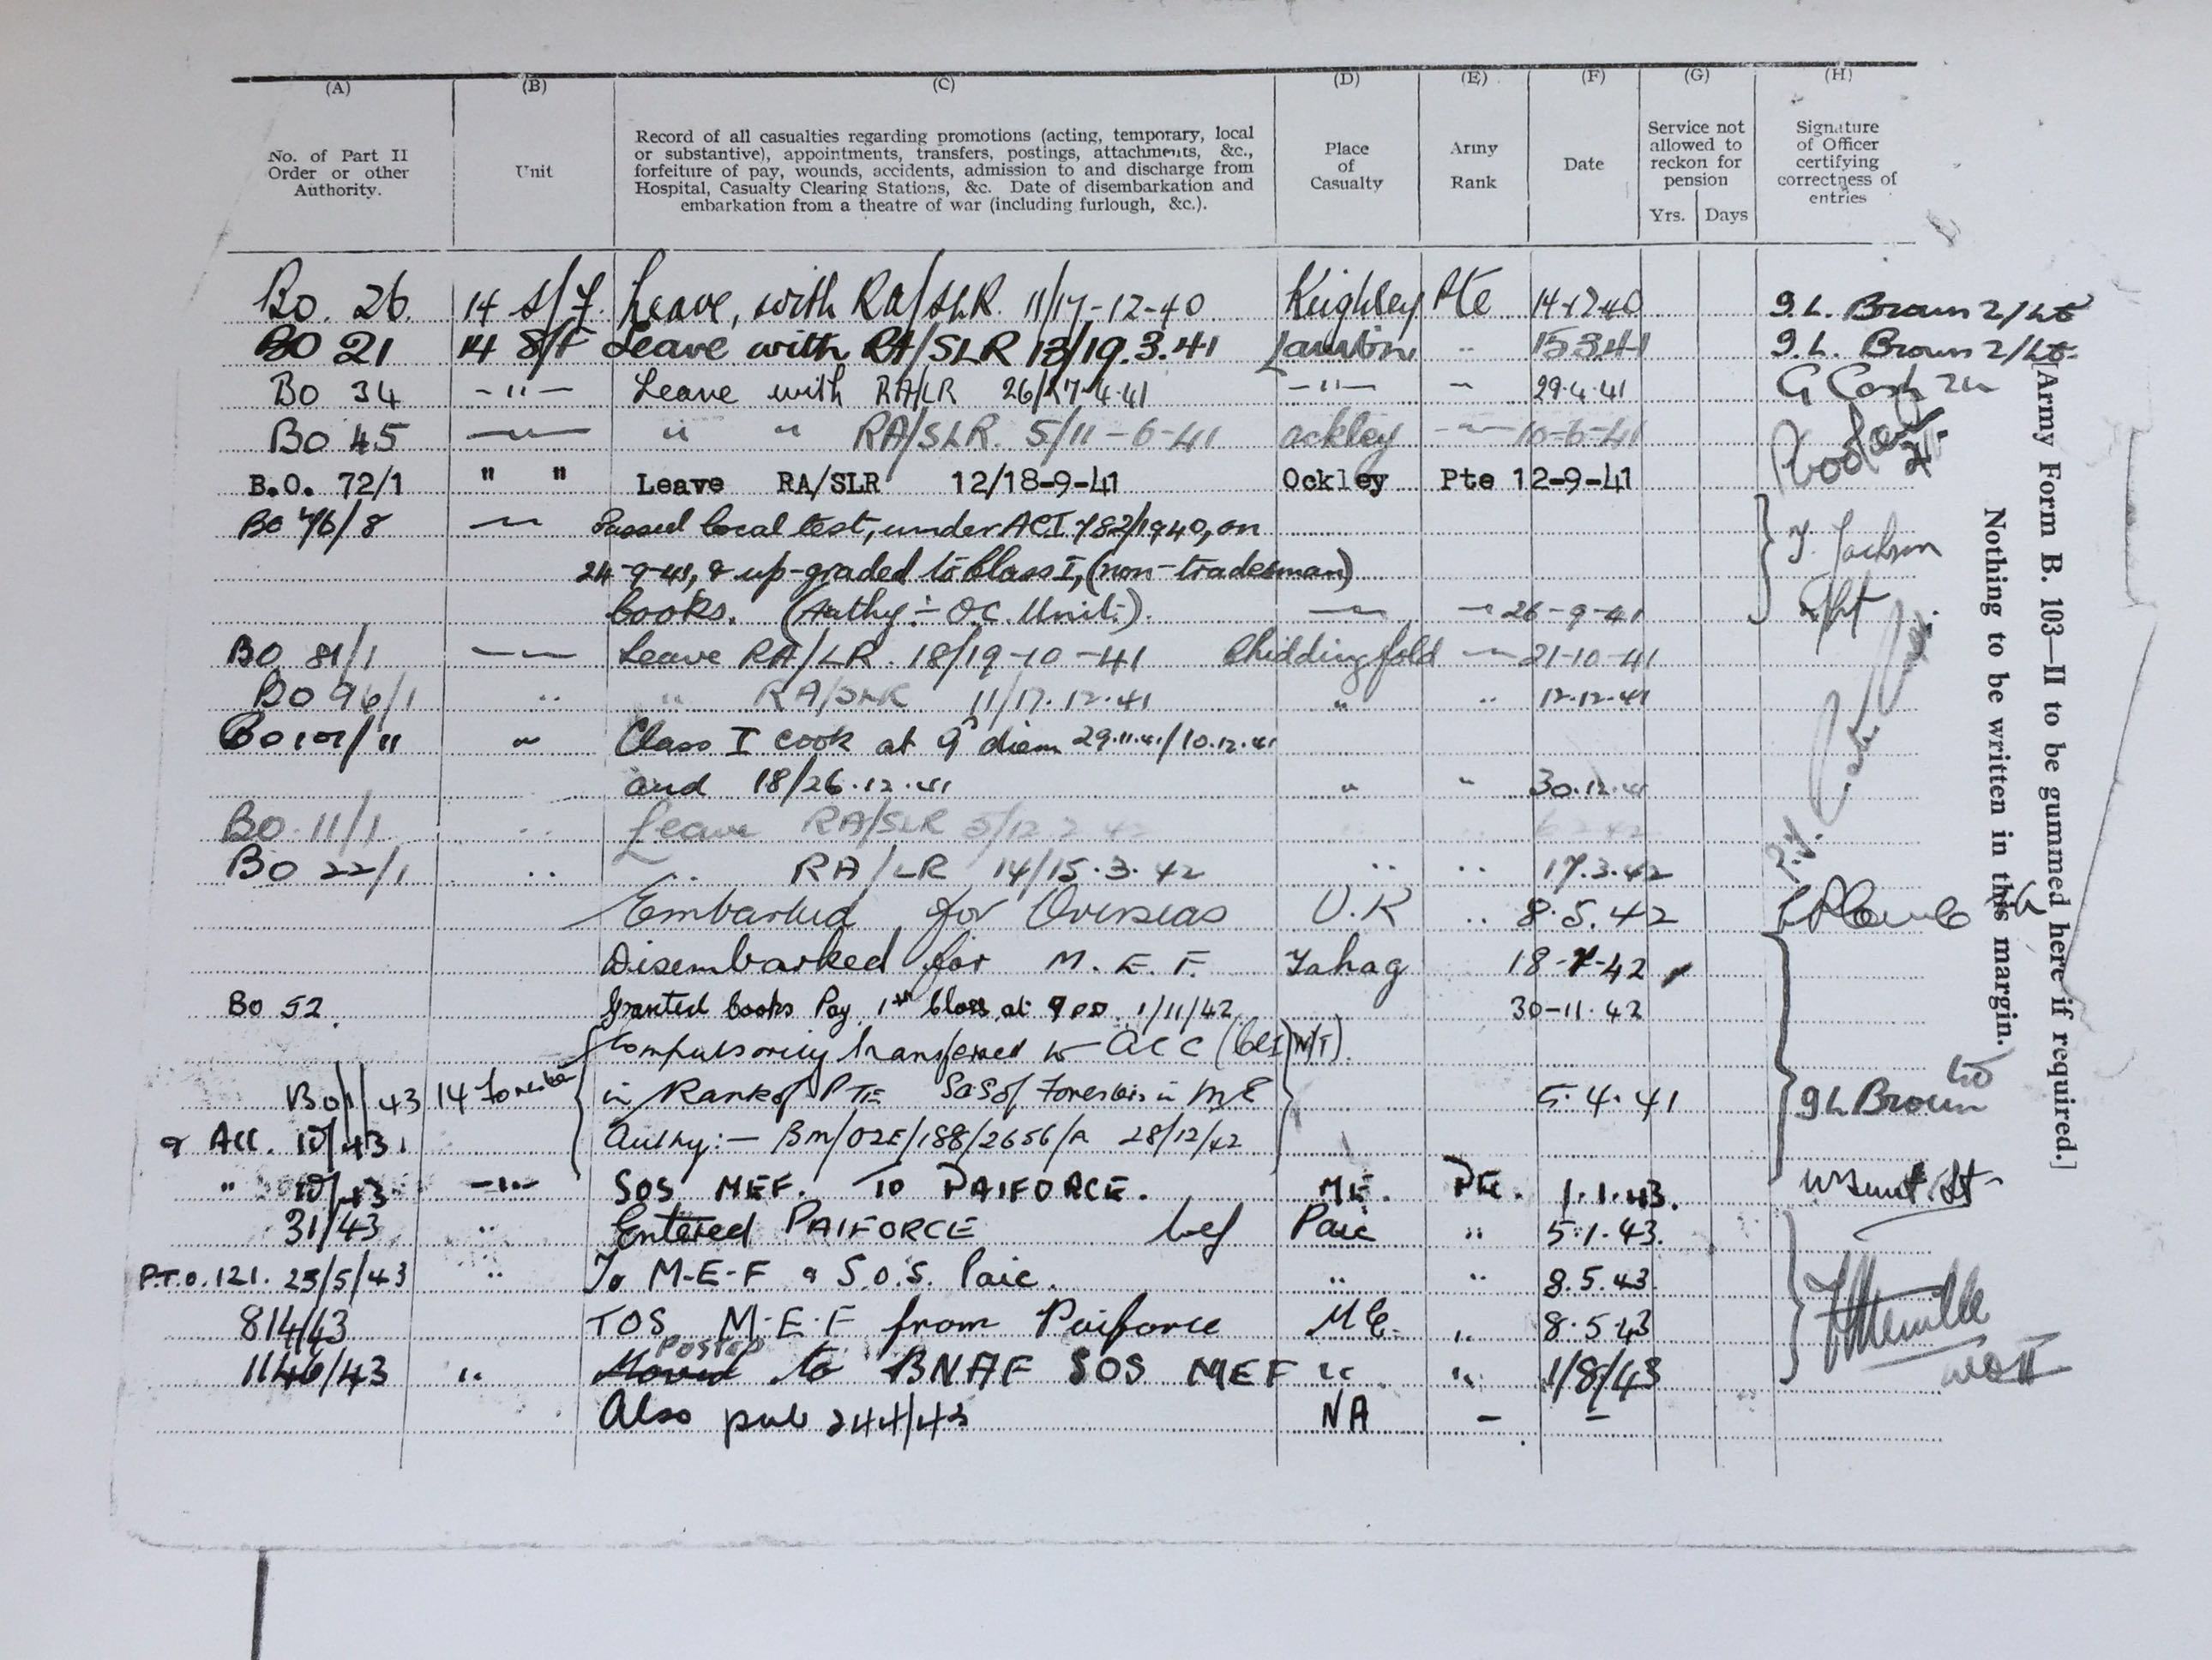 (A) (B) (C) (D) (E) (F) (G) (H)
No. of Part II Order or other Authority.
Unit
Record of all casualties regarding promotions (acting, temporary, local
or substantive), appointments, transfers, postings, attachments, &c.,
forfeiture of pay, wounds, accidents, admission to and discharge from
Hospital, Casualty Clearing Stations, &c. Date of disembarkation and
embarkation from a theatre of war (including furlough, &c.).
Place of Casualty
Army Rank
Date
Service not allowed to reckon for pension
Yrs. Days
Signature of Officer certifying correctness of entries
Bo. 26. 14 S/F. Leave, with RA/SLR. 11/17-12-40 Keighley Pte 14-12-40 G.L. Brown 2/Lt
BO 21 14 S/F Leave with RA/SLR 13/19.3.41 " 15.3.41 G.L. Brown 2/Lt
BO 34 -"- Leave with RA/LR 26/27-4-41 -"- " 29.4.41 G Cash
BO 45 -"- " " RA/SLR. 5/11-6-41 ockley -"- 10-6-41
B.O. 72/1 " " Leave RA/SLR 12/18-9-41 Ockley Pte 12-9-41
BO 76/8 -"- Passed local test, under ACI 782/1940, on
24-9-41, & up-graded to Class I, (non-tradesman)
Cooks. (Authy:- O.C. Unit.). -"- -"- 26-9-41 Jackson
BO 81/1 -"- Leave RA/LR. 18/19-10-41 Chiddingfold -"- 21-10-41
BO 96/1 " " RA/SLR 11/17.12.41 " " 12.12.41
BO 101/11 " Class I cook at 9d diem 29.11.41/10.12.41
and 18/26.12.41 " " 30.12.41
BO 11/1 " Leave RA/SLR 5/12 2 42 6 2 42
BO 22/1 " " RA/LR 14/15.3.42 " " 17.3.42
Embarked for Overseas U.K " 8.5.42
Disembarked for M.E.F. Tahag 18-7-42
Bo 52. Granted Cooks Pay 1st Class at 9d 1/11/42 30-11-42
Compulsorily transferred to ACC (Cl I) (N/T).
Bo 1/43 14 Forester in Rank of PTE SOS of Foresters in ME 5.4.41 G L Brown Lt
& Acc. 10/43. Authy:- Bm/O2E/188/2656/A 28/12/42
" 10/43 -"- SOS MEF. TO PAIFORCE. ME. PTE. 1.1.43.
31/43 " Entered PAIFORCE Paic " 5.1.43.
P.T.O. 121. 25/5/43 " To M-E-F & S.O.S. Paic. " " 8.5.43
814/43 TOS M.E.F from Paiforce ME. " 8.5.43
POSTED
1146/43 " Moved to BNAF SOS MEF " " 1/8/43 WO II
Also pub 244/43 NA - -
[Army Form B. 103—II to be gummed here if required.]
Nothing to be written in this margin.